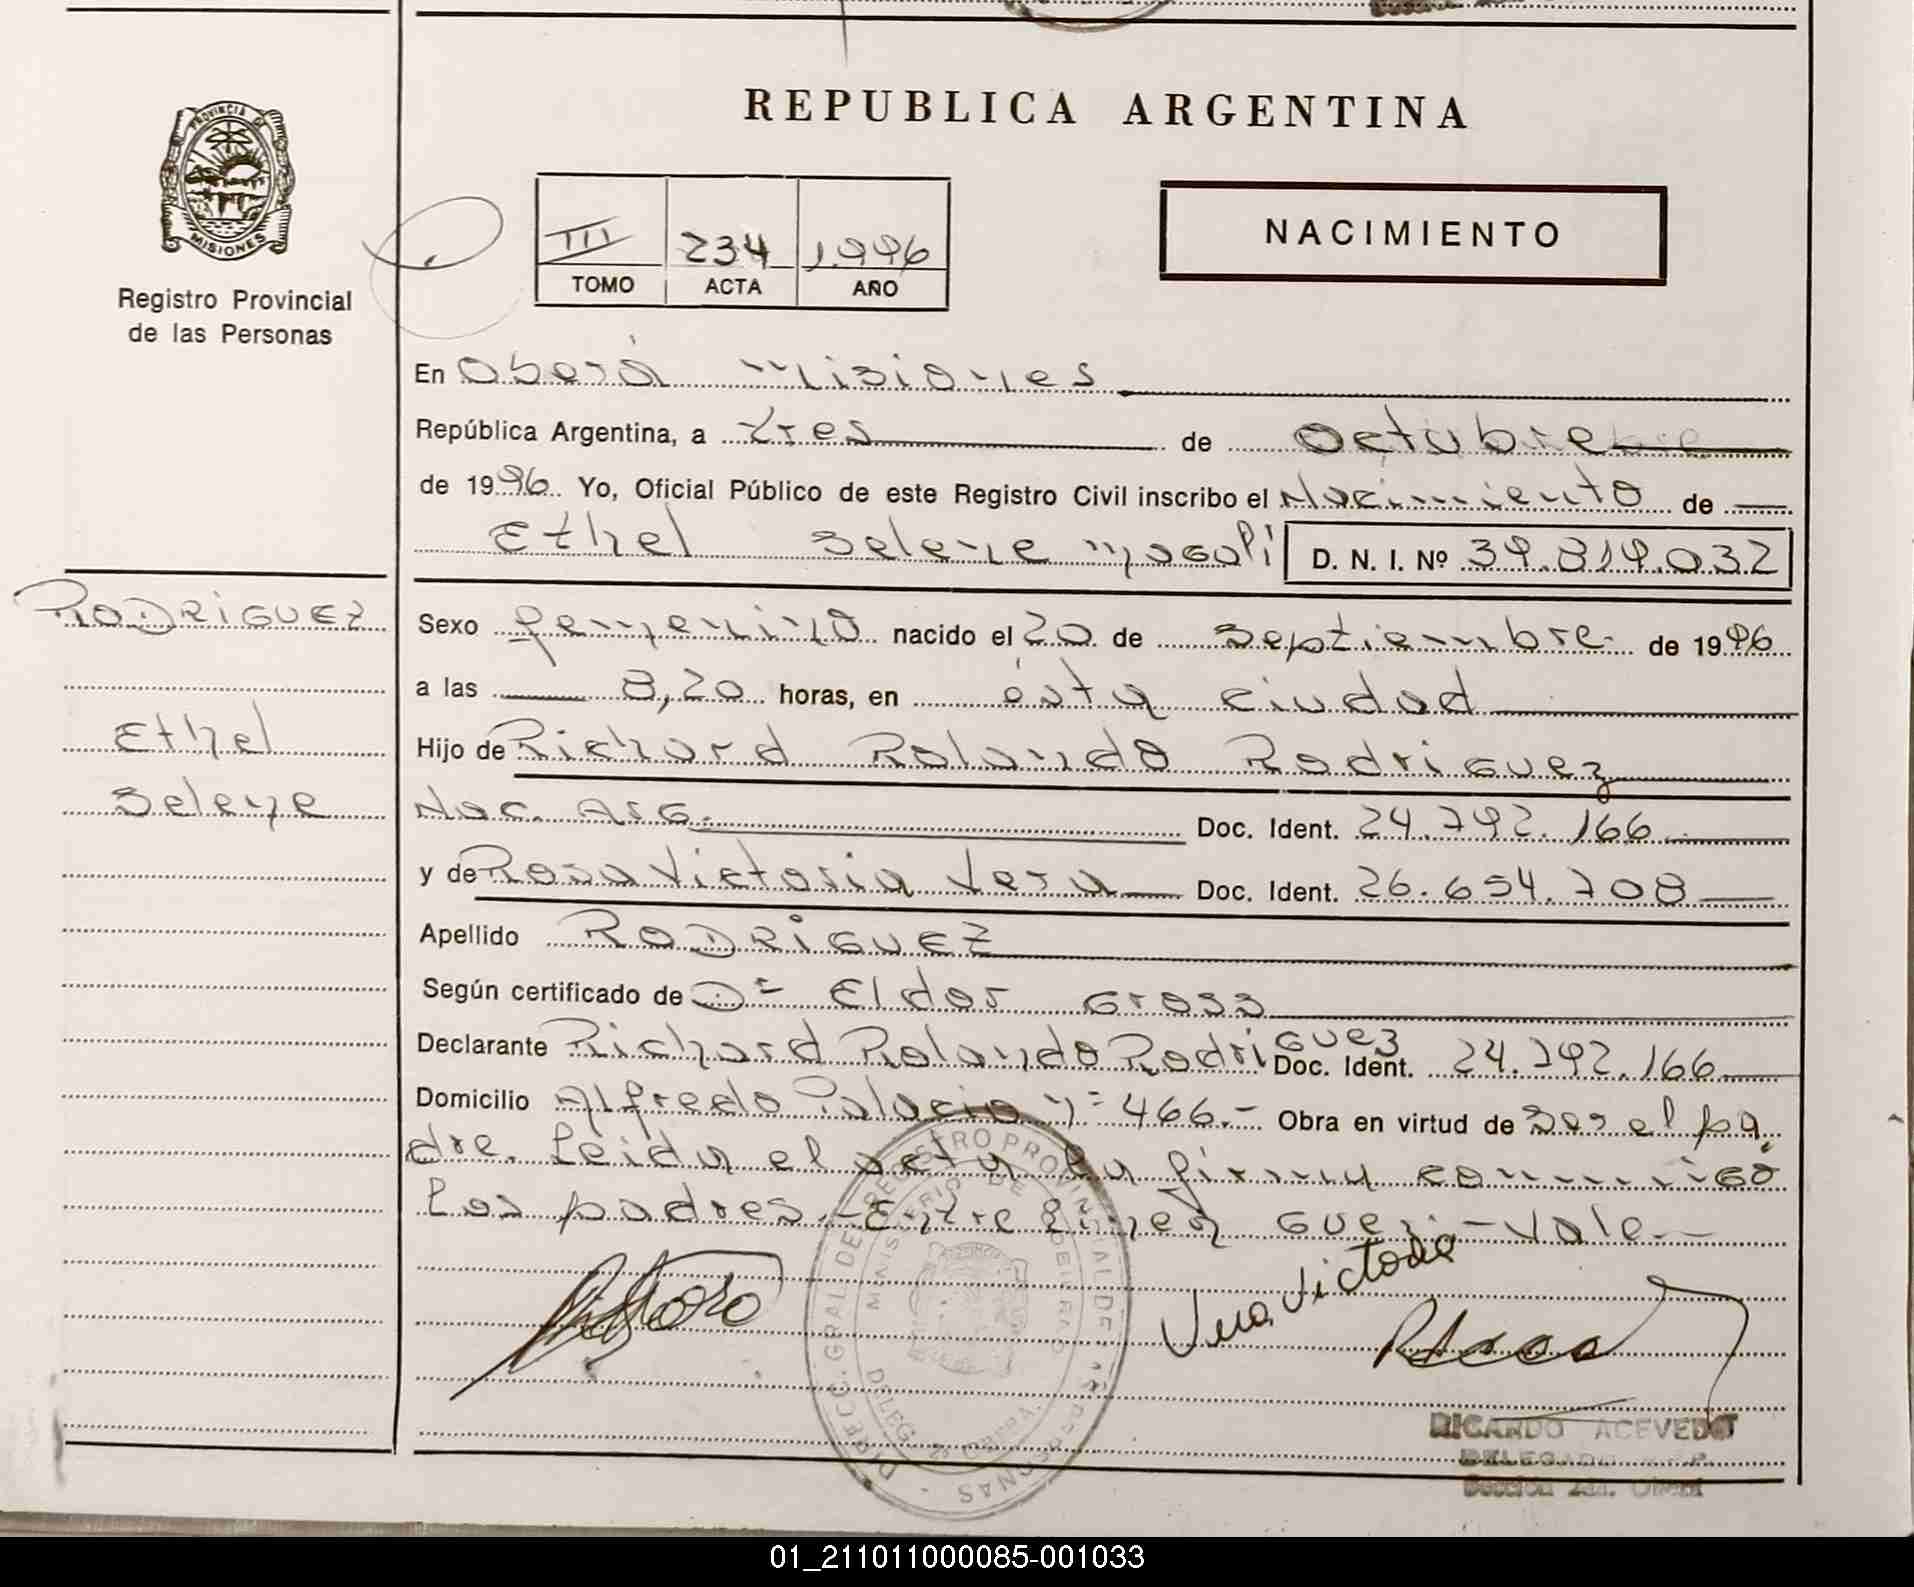 REPUBLICA ARGENTINA
PROVINCIA DE
MISIONES
Registro Provincial
de las Personas
III 234 1.996
TOMO ACTA AÑO
NACIMIENTO
En Oberá Misiones
República Argentina, a tres de Octubre
de 1996. Yo, Oficial Público de este Registro Civil inscribo el Nacimiento de
Ethel Selene D. N. I. Nº 39.819.032
RODRIGUEZ
Ethel
Selene
Sexo femenino nacido el 20 de Septiembre de 1996
a las 8,20 horas, en ésta ciudad
Hijo de Richard Rolando Rodriguez
Nac. Arg. Doc. Ident. 24.792.166
y de Rosa Victoria Vera Doc. Ident. 26.654.708
Apellido RODRIGUEZ
Según certificado de Dº Eldor Gross
Declarante Richard Rolando Rodriguez Doc. Ident. 24.792.166
Domicilio Alfredo Palacio nº 466.- Obra en virtud de Ser el pa
dre. Leida el acta la firma conmigo
los padres.- Entre linea guez - Vale.-
Vera Victoria
RICARDO ACEVEDO
DELEGADO
Sección 2da. Oberá
01_211011000085-001033